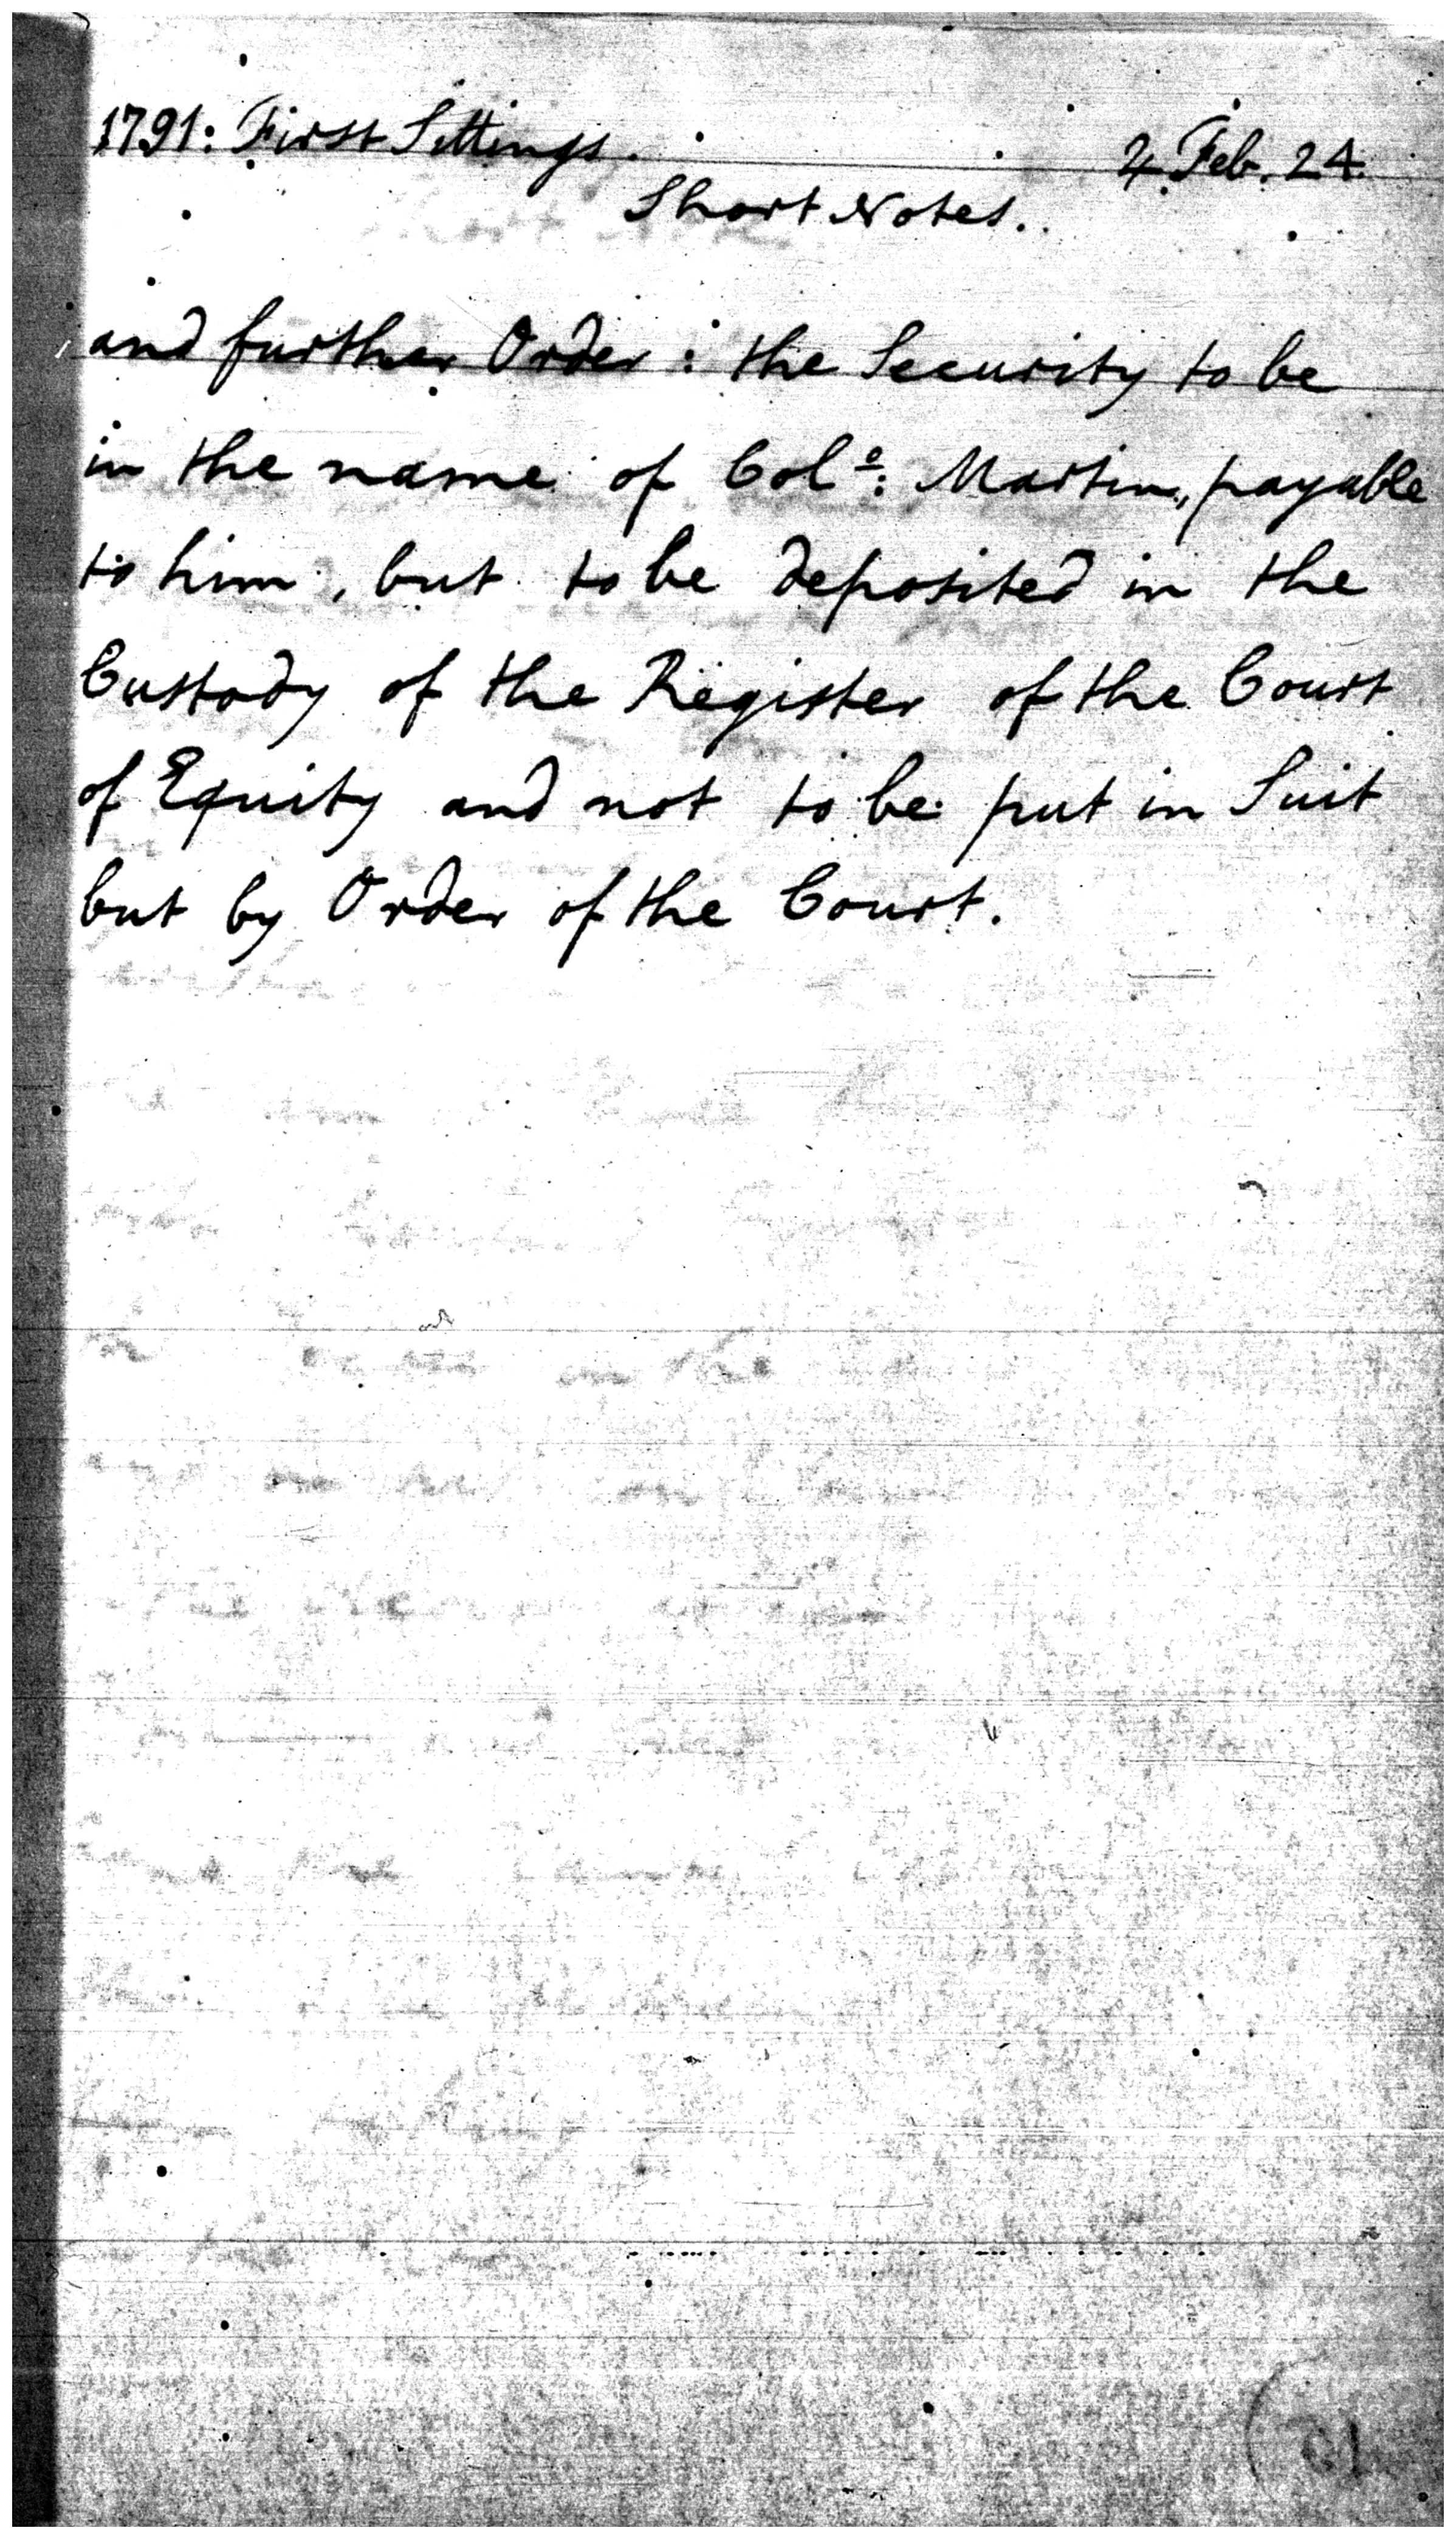 1791: First Sittings. 4 Feb. 24.
Short Notes.
and further Order: the Security to be
in the name of Col.º: Martin, payable
to him, but to be deposited in the
Custody of the Register of the Court
of Equity and not to be put in Suit
but by Order of the Court.